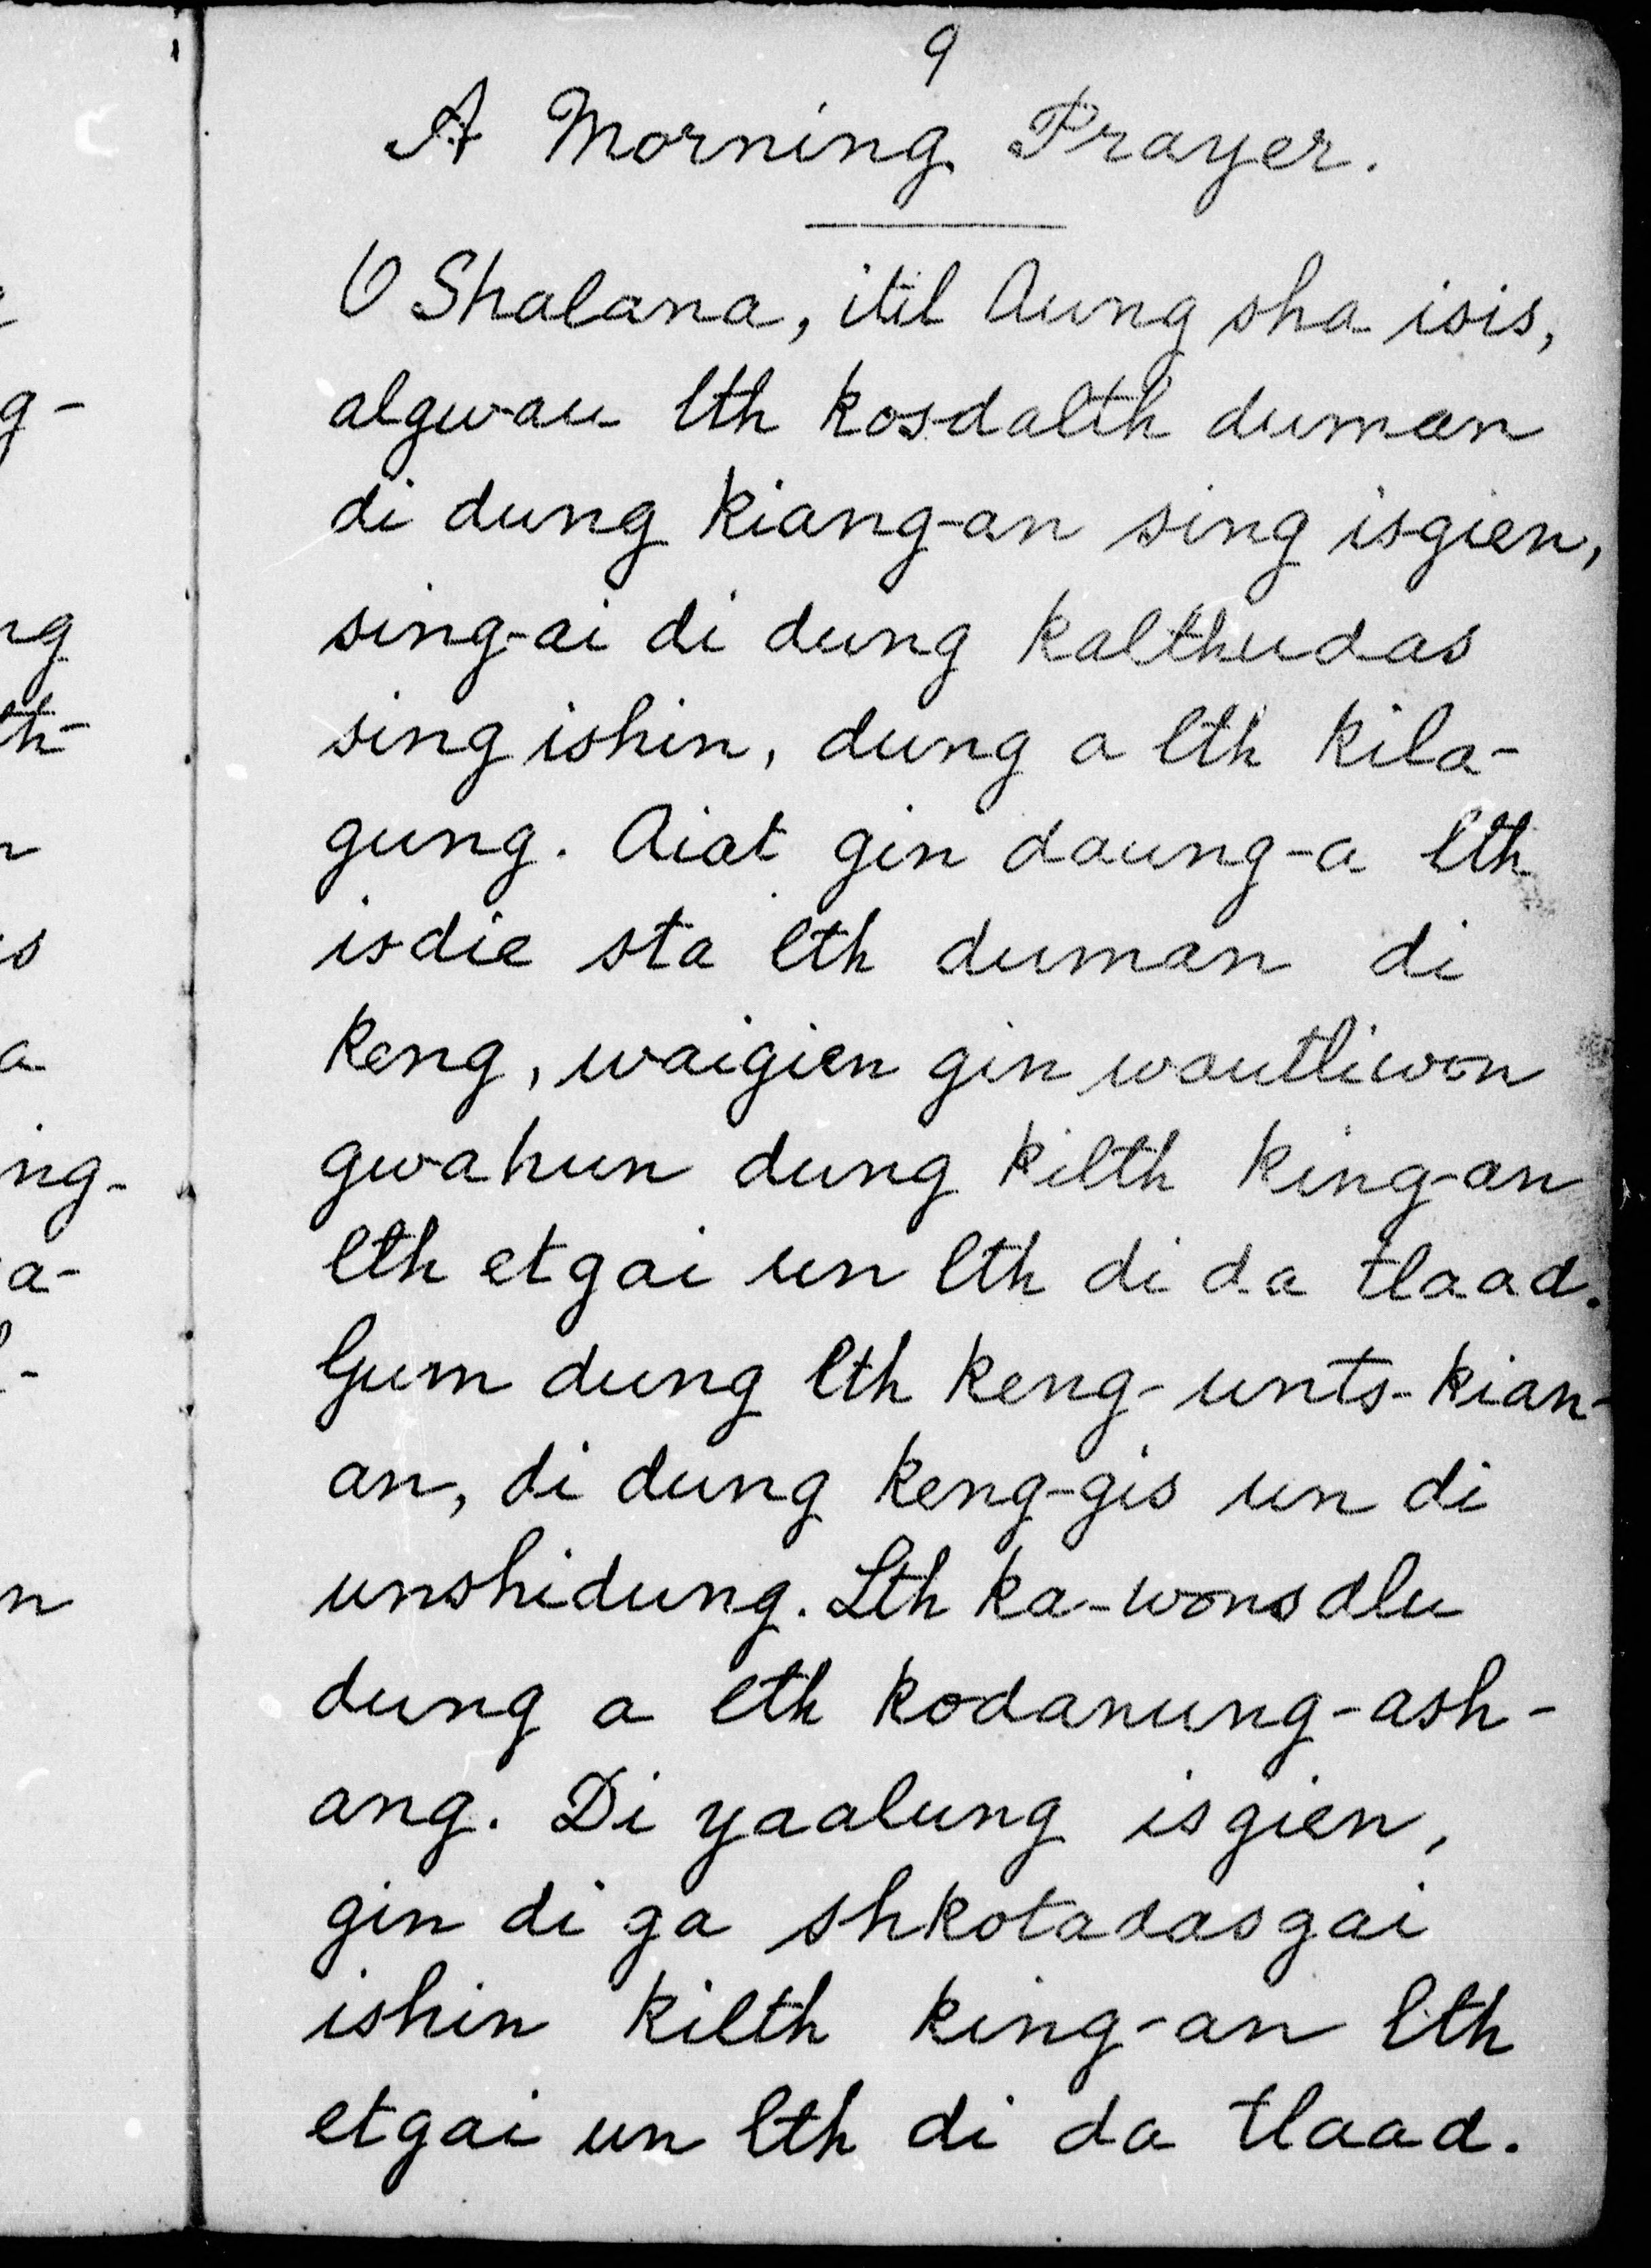 9
A Morning Prayer.
O Shalana, itil Aung sha isis,
algwau lth kosdalth duman
di dung kiang-an sing isgien,
sing-ai di dung kalthudas
sing ishin, dung a lth kila-
gung. Aiat gin daung-a lth
isdie sta lth duman di
keng, waigien gin wautliwon
gwahun dung kilth king-an
lth etgai un lth di da tlaad.
Gum dung lth keng-unts-kian-
an, di dung keng-gis un di
unshidung. Lth ka-wonsdlu
dung a lth kodanung-ash-
ang. Di yaalung isgien,
gin di ga shkotadasgai
ishin kilth king-an lth
etgai un lth di da tlaad.